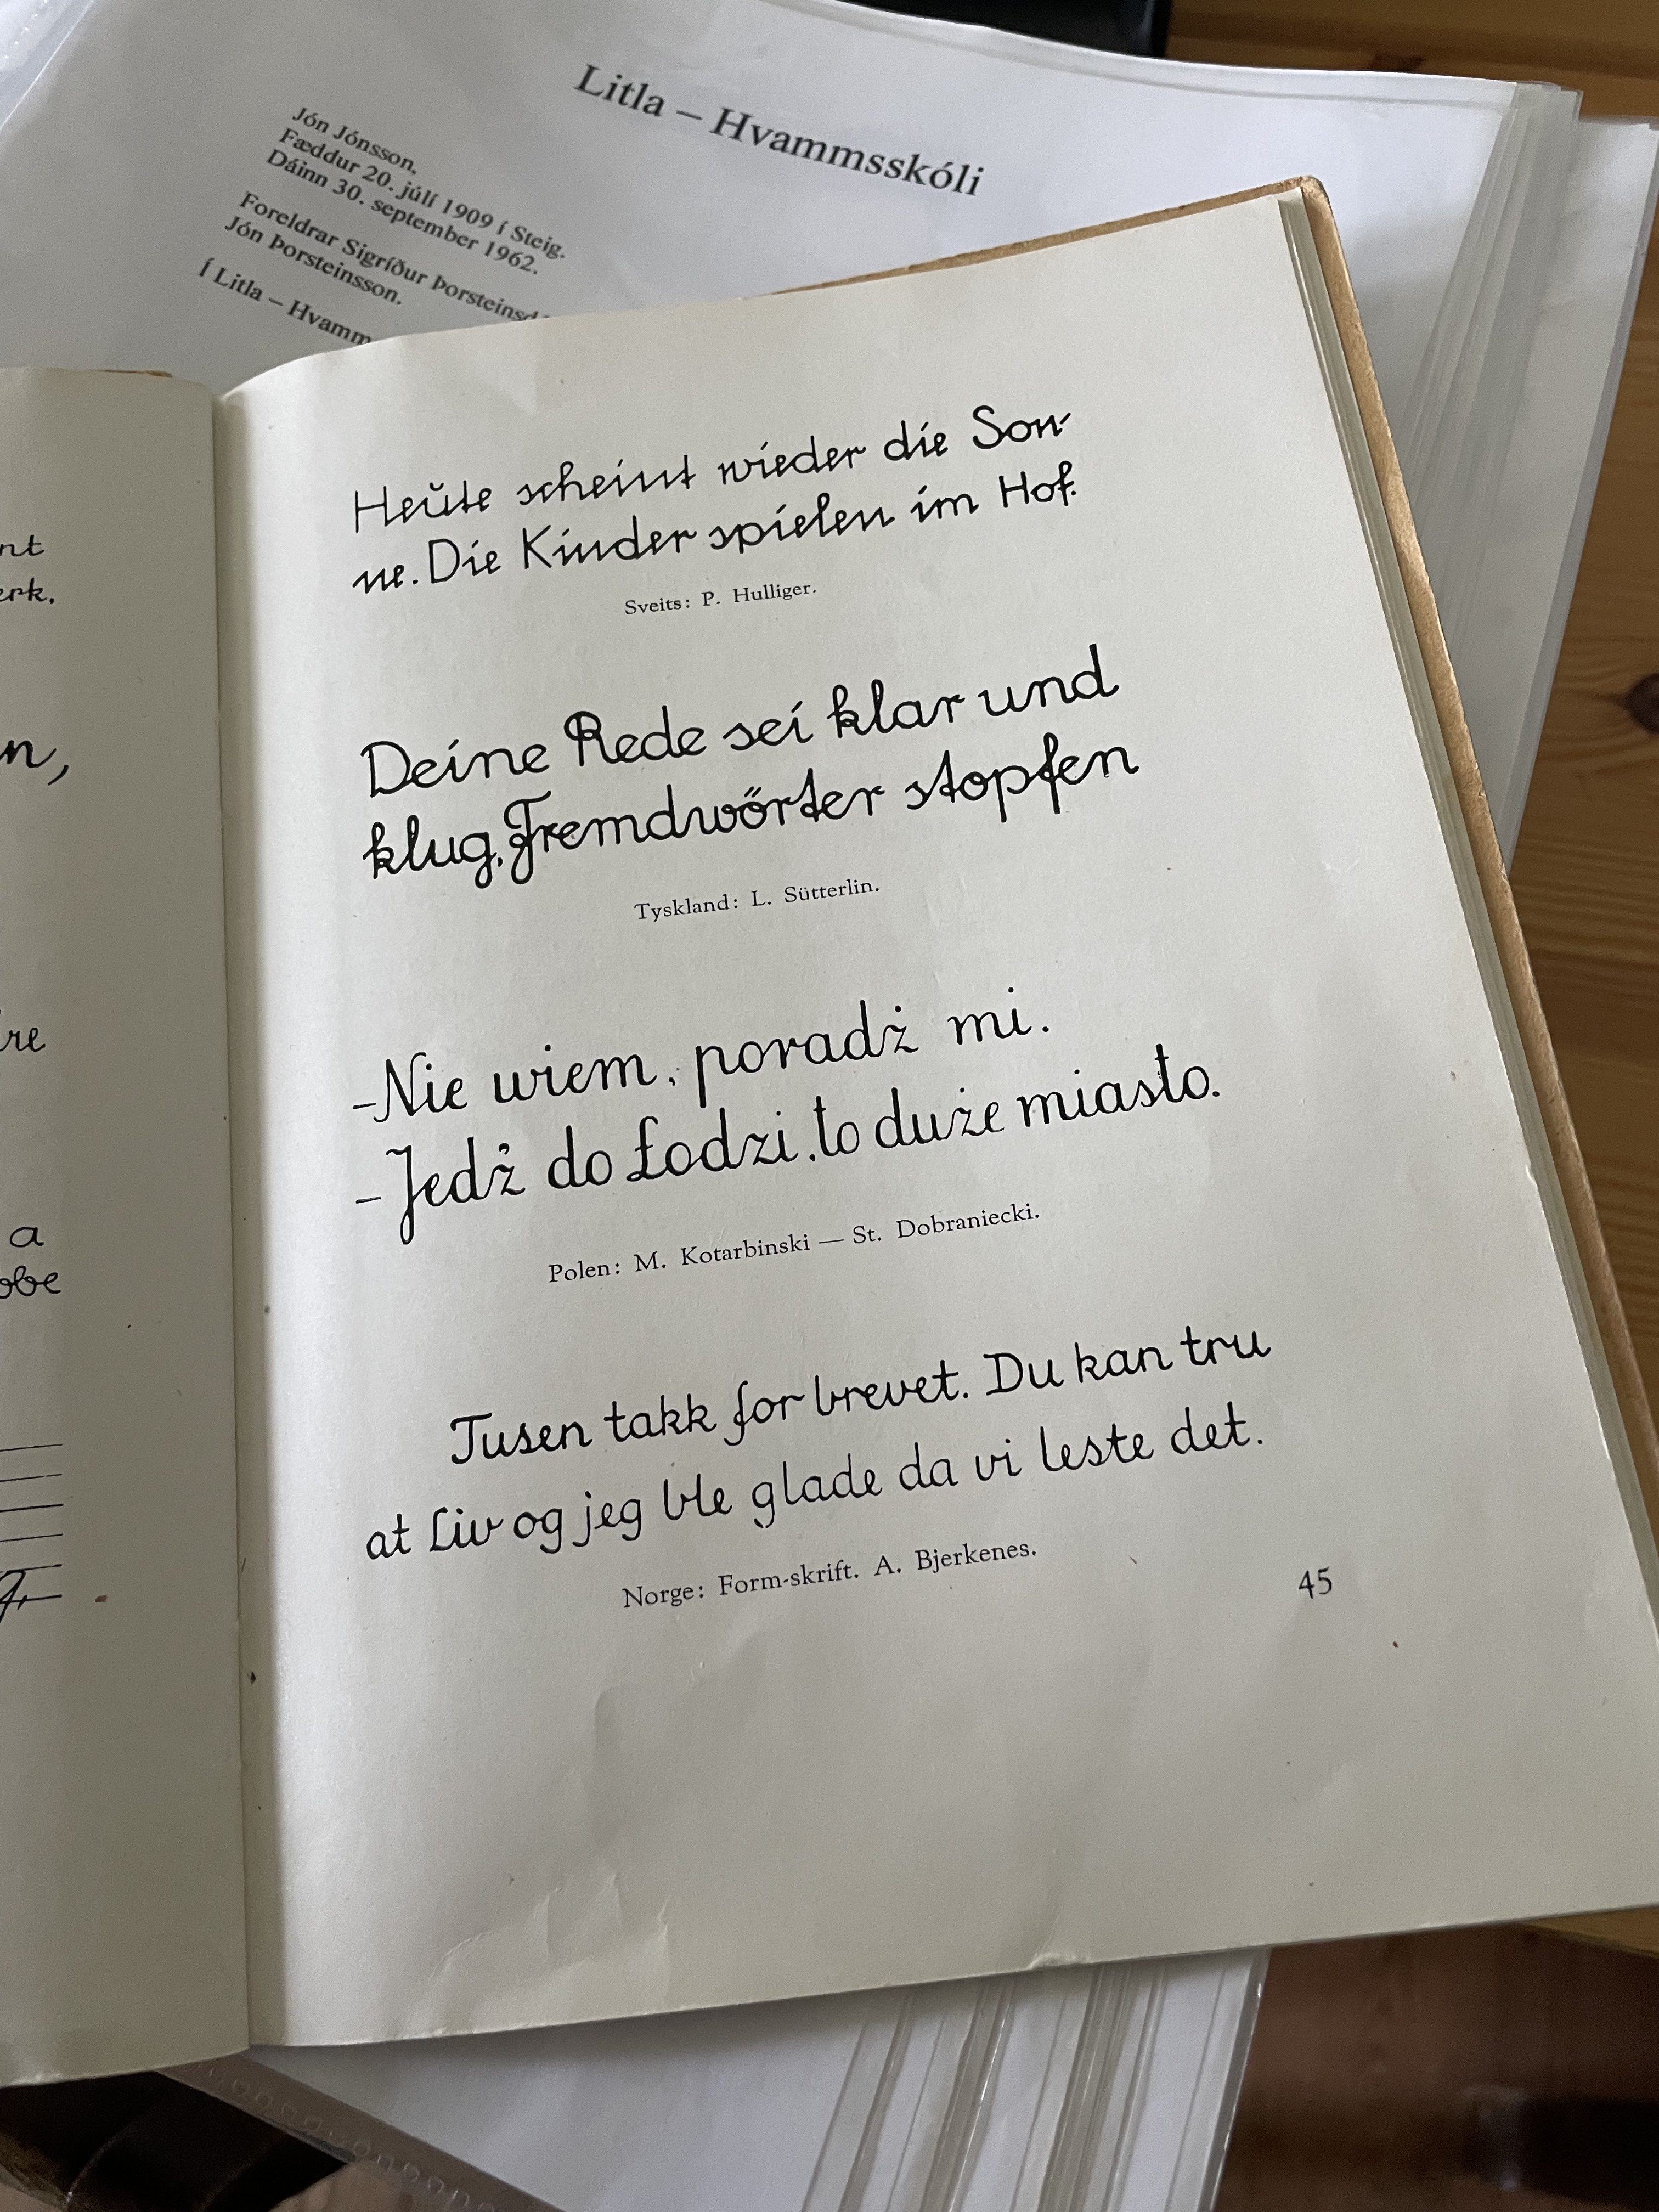 Litla – Hvammsskóli
Jón Jónsson,
Fæddur 20. júlí 1909 í Steig.
Dáinn 30. september 1962.
Foreldrar Sigríður
Jón Þorsteinsson.
Í Litla –
nt
n,
a
Heŭte scheint wieder die Son-
ne. Die Kinder spielen im Hof.
Sveits: P. Hulliger.
Deine Rede sei klar und
klug, Fremdwörter stopfen
Tyskland: L. Sütterlin.
–Nie wiem, poradź mi.
–Jedź do Łodzi, to duże miasto.
Polen: M. Kotarbinski — St. Dobraniecki.
Tusen takk for brevet. Du kan tru
at Liv og jeg ble glade da vi leste det.
Norge: Form-skrift. A. Bjerkenes.
45